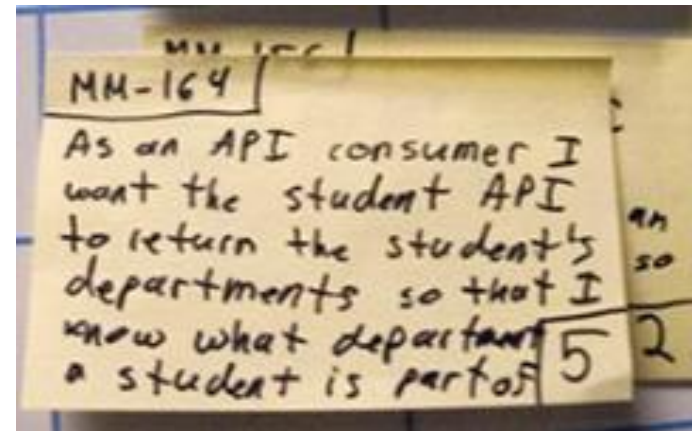 MM-156
MM-164
As an API consumer I
want the student API
to return the student's
departments so that I
know what department
a student is part of
5
an
so
2